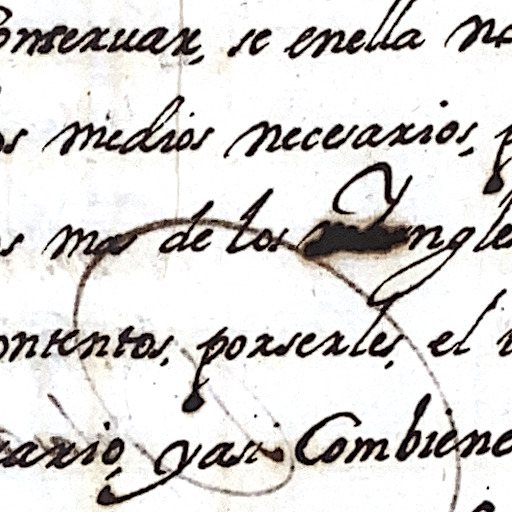 Conseruar, se enella no
os medios necesarios, p
os mas de los Yngles
ontentos, porserles, el
rario, yasi Combiene